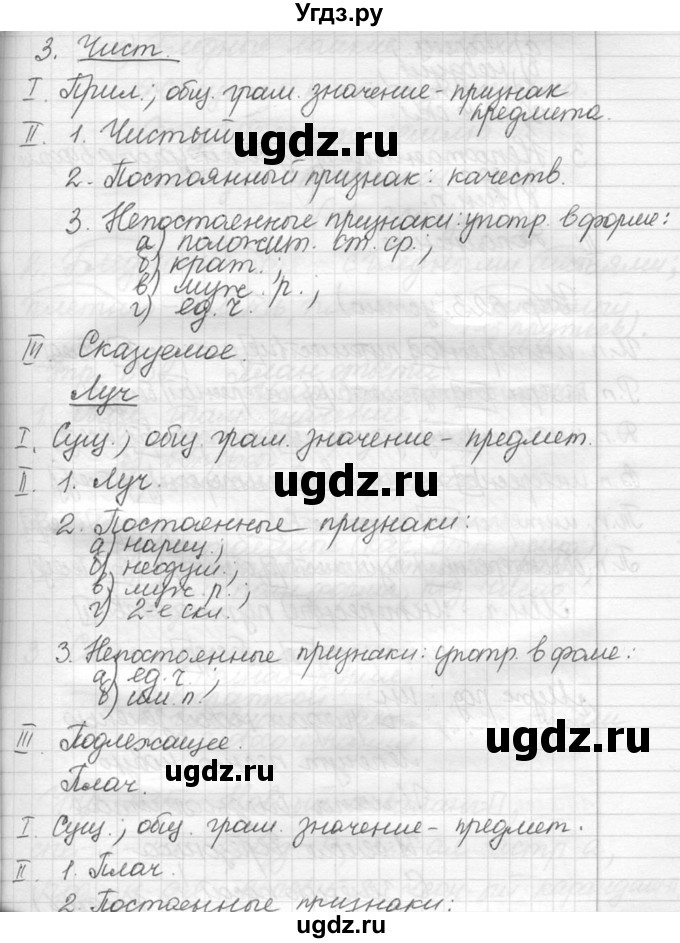 Угдз.ру
3. Чист.
I. Прил.; общ. грам. значение – признак
предмета.
II. 1. Чистый
ugdz.ru
2. Постоянный признак: качеств.
3. Непостоенные признаки: употр. в форме:
а) положит. ст. ср.;
б) крат.;
в) муж. р.;
г) ед. ч.
ugdz.ru
III Сказуемое.
Луч
I. Сущ.; общ. грам. значение – предмет.
II. 1. Луч.
ugdz.ru
2. Постоенные признаки:
а) нариц.;
б) неодуш.;
в) муж. р.;
г) 2-е скл.
ugdz.ru
3. Непостоянные признаки: употр. в фоме:
а) ед. ч.;
б) им. п.
III Подлежащее.
ugdz.ru
Плач.
ugdz.ru
I. Сущ.; общ. грам. значение – предмет.
II. 1. Плач.
2. Постоенные признаки:
ugdz.ru